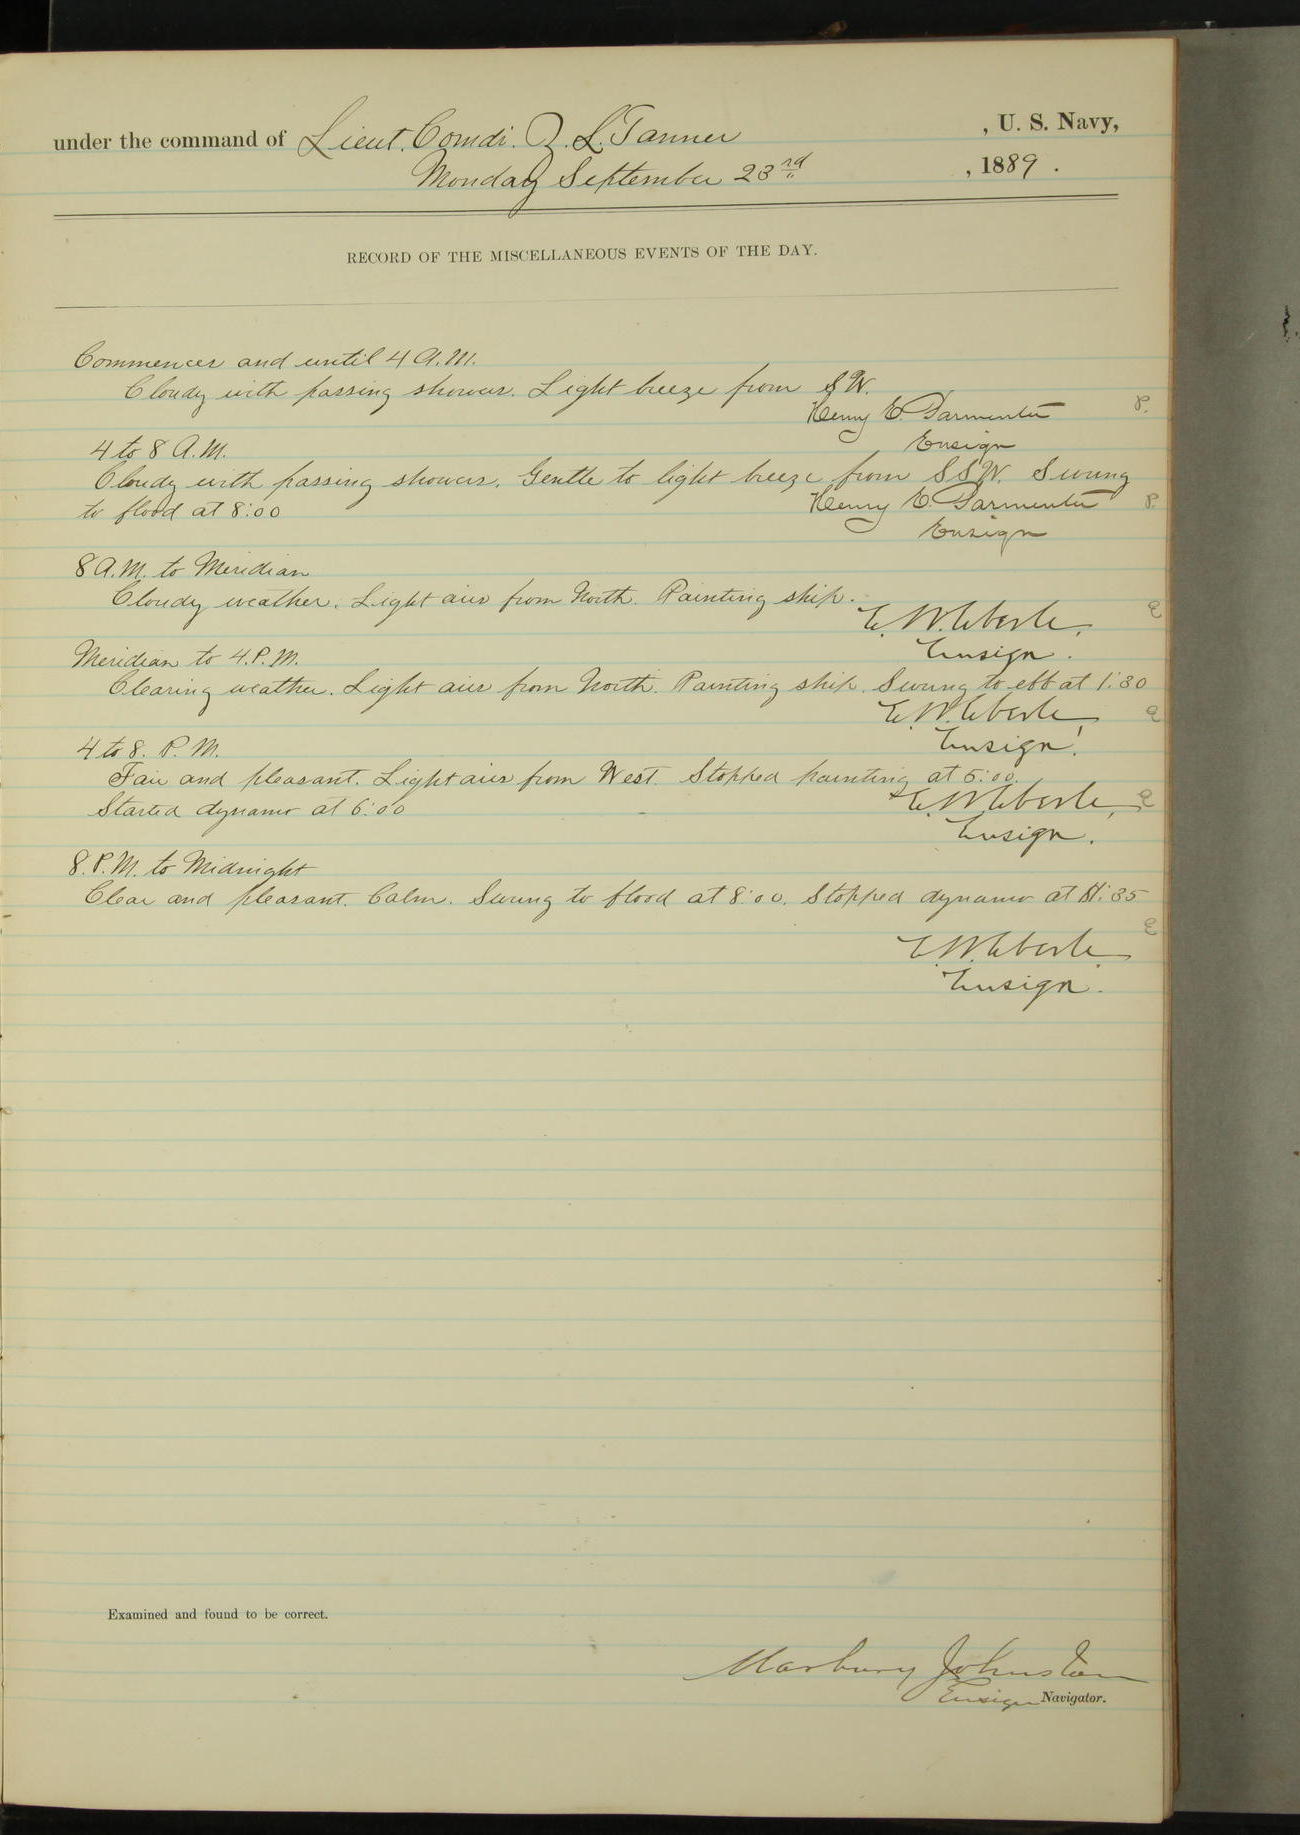 under the command of Lieut. Comdr. Z. L. Tanner , U. S. Navy,
Monday September 23rd , 1889 .
RECORD OF THE MISCELLANEOUS EVENTS OF THE DAY.
Commences and until 4 A.M.
Cloudy with passing showers. Light breeze from SW.
Henry E. Parmenter P.
Ensign
4 to 8 A.M.
Cloudy with passing showers. Gentle to light breeze from SSW. Swung
to flood at 8:00
Henry E. Parmenter P.
Ensign
8 A.M. to Meridian
Cloudy weather. Light airs from North. Painting ship.
E. W. Eberle, E
Ensign.
Meridian to 4.P.M.
Clearing weather. Light airs from North. Painting ship. Swung to ebb at 1:30
E. W. Eberle, E
Ensign.
4 to 8. P. M.
Fair and pleasant. Light airs from West. Stopped painting at 5:00.
Started dynamo at 6:00
E. W. Eberle, E
Ensign.
8. P.M. to Midnight
Clear and pleasant. Calm. Swung to flood at 8:00. Stopped dynamo at 11:35
E
E. W. Eberle
Ensign.
Examined and found to be correct.
Marbury Johnston
Ensign Navigator.